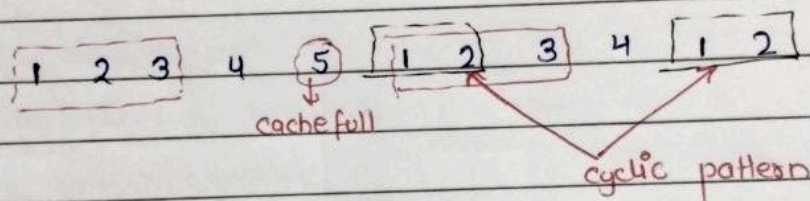 1 2 3 4 5 1 2 3 4 1 2
cache full
cyclic pattern